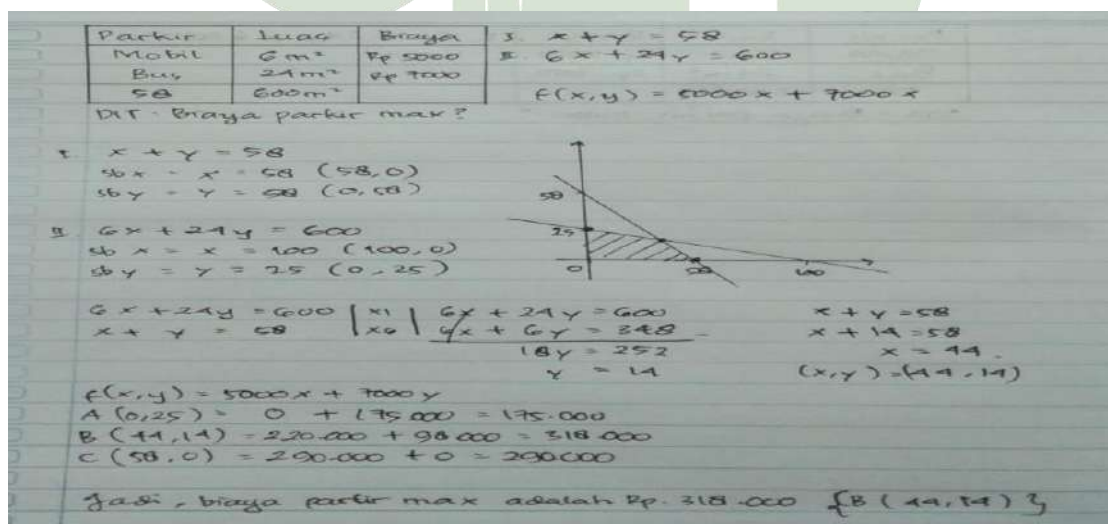 Parkir Luas Biaya I. x + y = 58
Mobil 6 m² Rp 5000 II. 6x + 24y = 600
Bus 24 m² Rp 7000
58 600 m² f(x, y) = 5000x + 7000x
DIT. Biaya parkir max?
I. x + y = 58
sb x = x = 58 (58,0)
sb y = y = 58 (0,58)
II. 6x + 24y = 600
sb x = x = 100 (100,0)
sb y = y = 25 (0,25)
58
25
0 58 100
6x + 24y = 600 | x1 | 6x + 24y = 600
x + y = 58 | x6 | 6x + 6y = 348 -
18y = 252
y = 14
x + y = 58
x + 14 = 58
x = 44.
(x,y) = (44,14)
f(x,y) = 5000x + 7000y
A (0,25) = 0 + 175.000 = 175.000
B (44,14) = 220.000 + 98.000 = 318.000
C (58,0) = 290.000 + 0 = 290.000
Jadi, biaya parkir max adalah Rp. 318.000 {B (44,14)}